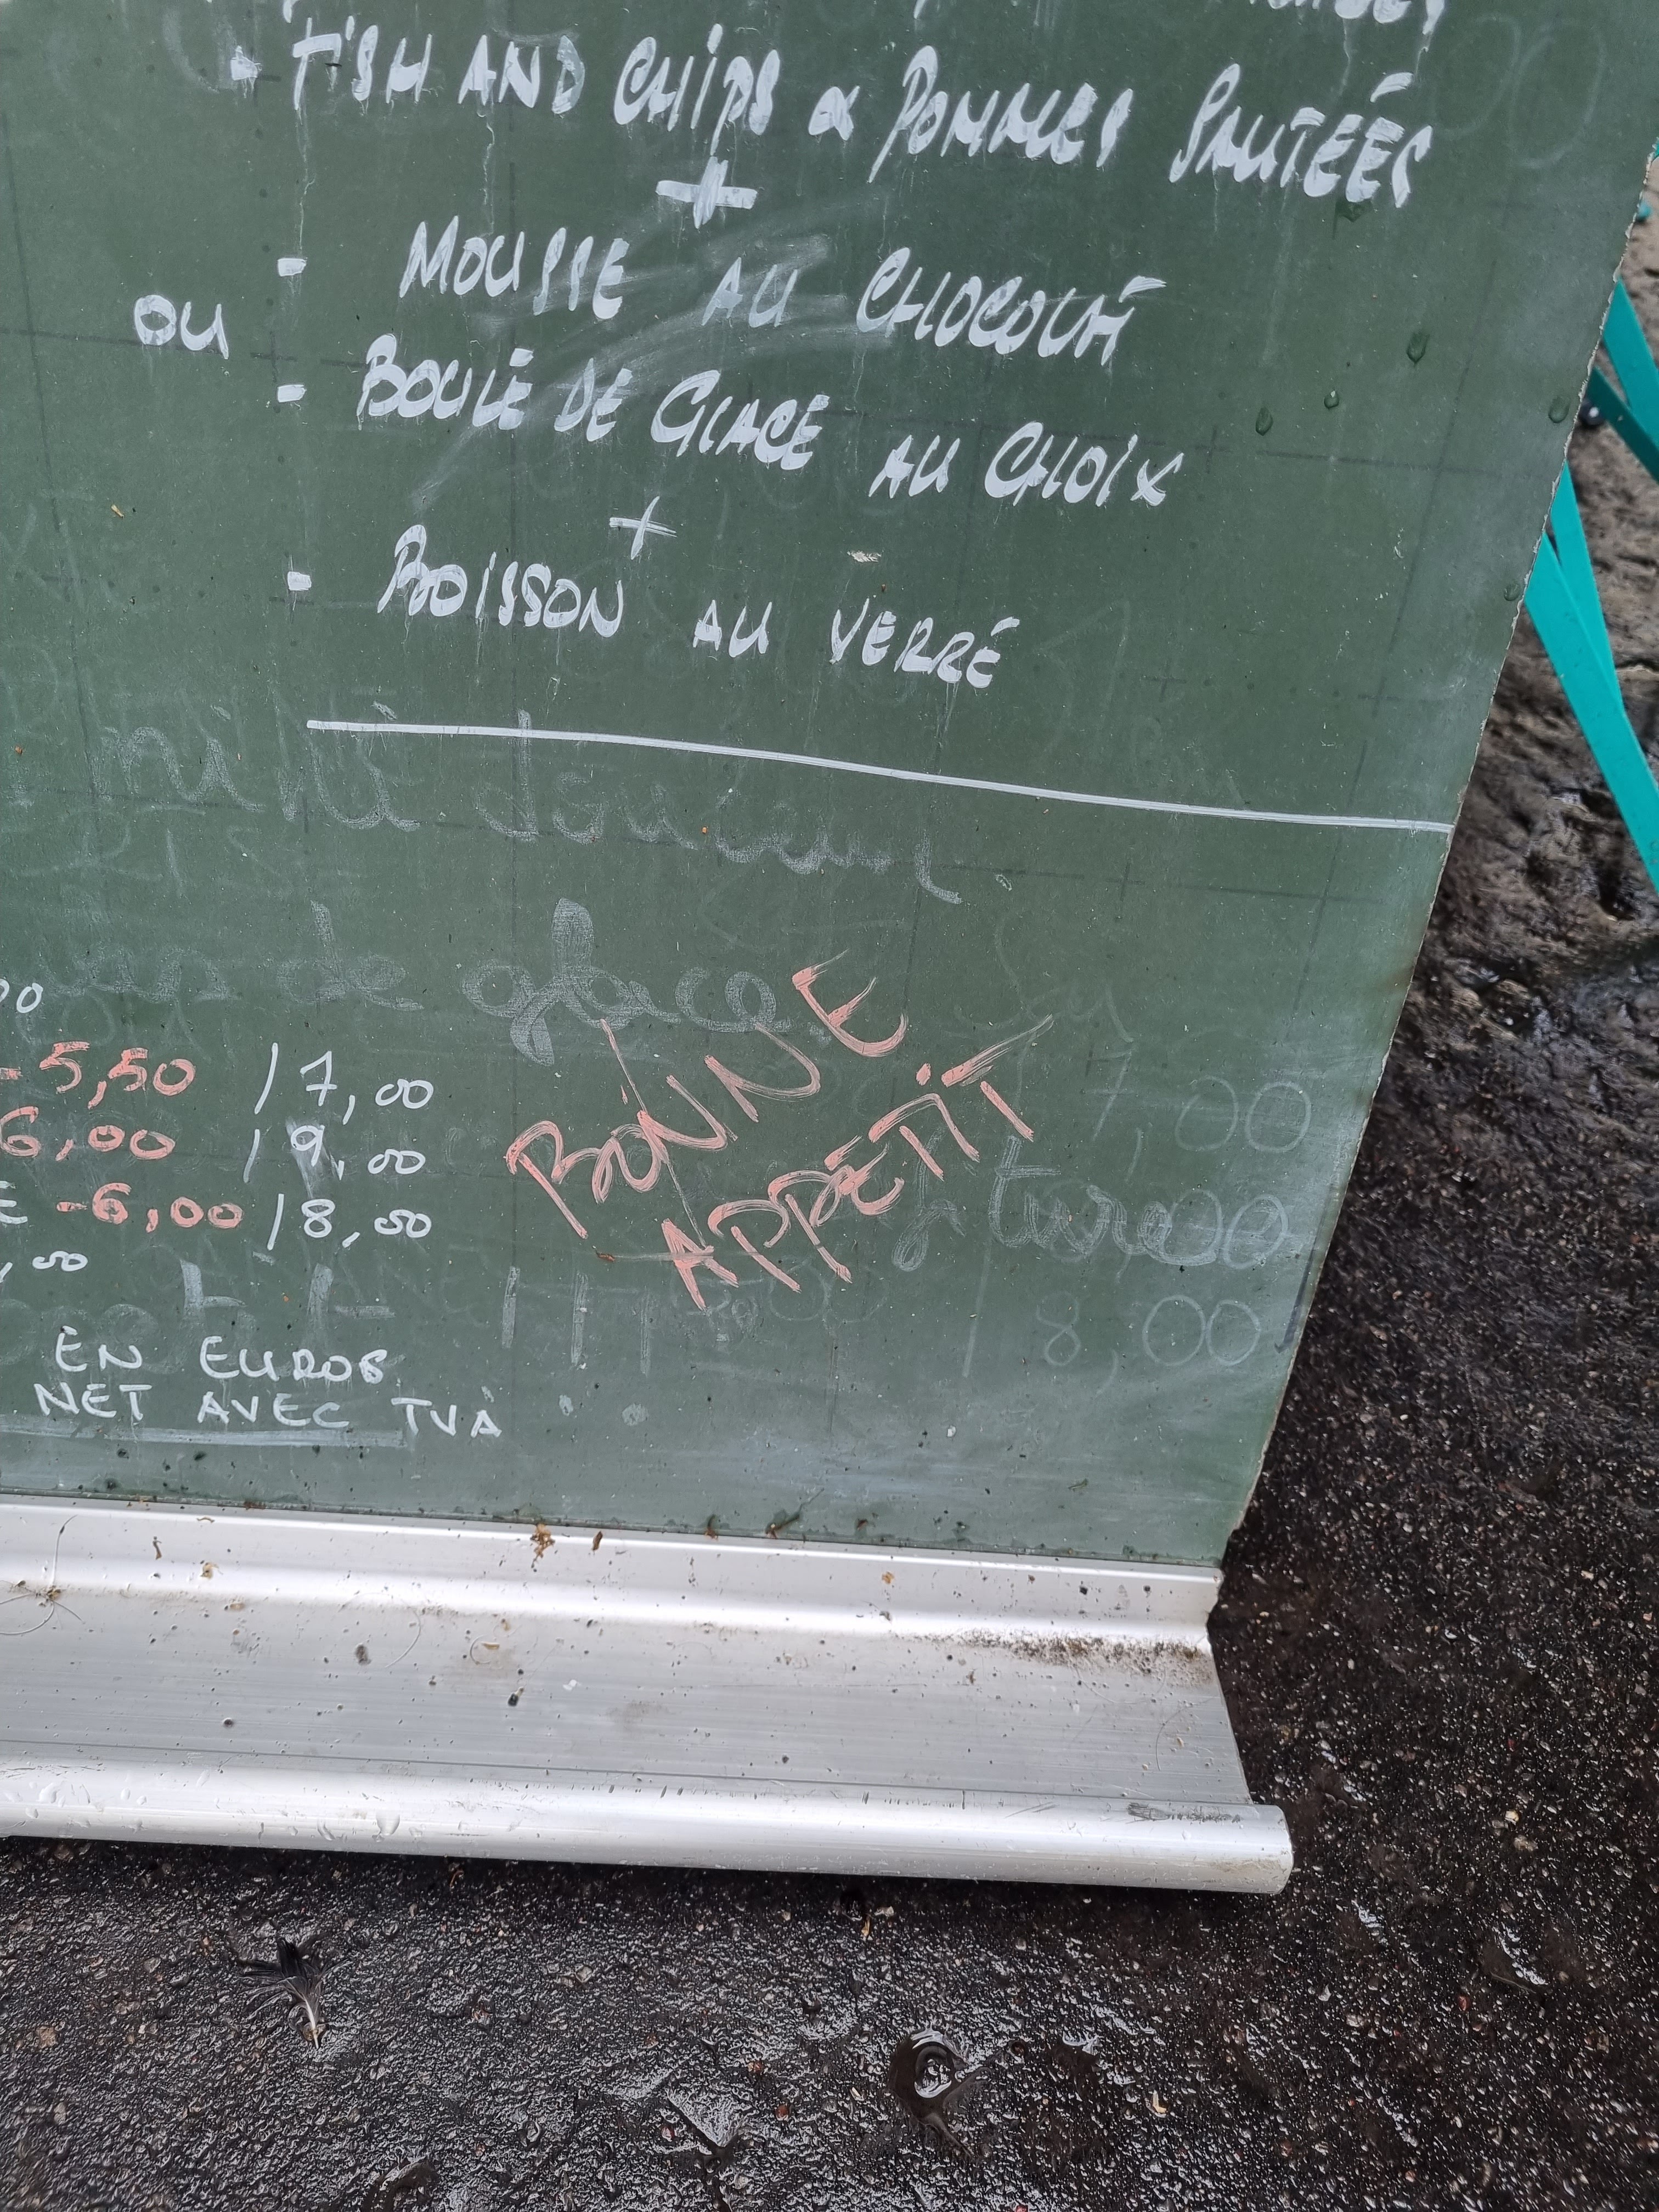 - FISH AND CHIPS & POMMES SAUTEÉS
+
- MOUSSE AU CHOCOLAT
OU
- BOULE DE GLACE AU CHOIX
+
- BOISSON AU VERRE
mini douceur
de glace
00
-5,50 / 7,00
6,00 / 9,00
E -6,00 / 8,00
,00
BONNE
APPETIT
7,00
8,00
EN EUROS
NET AVEC TVA